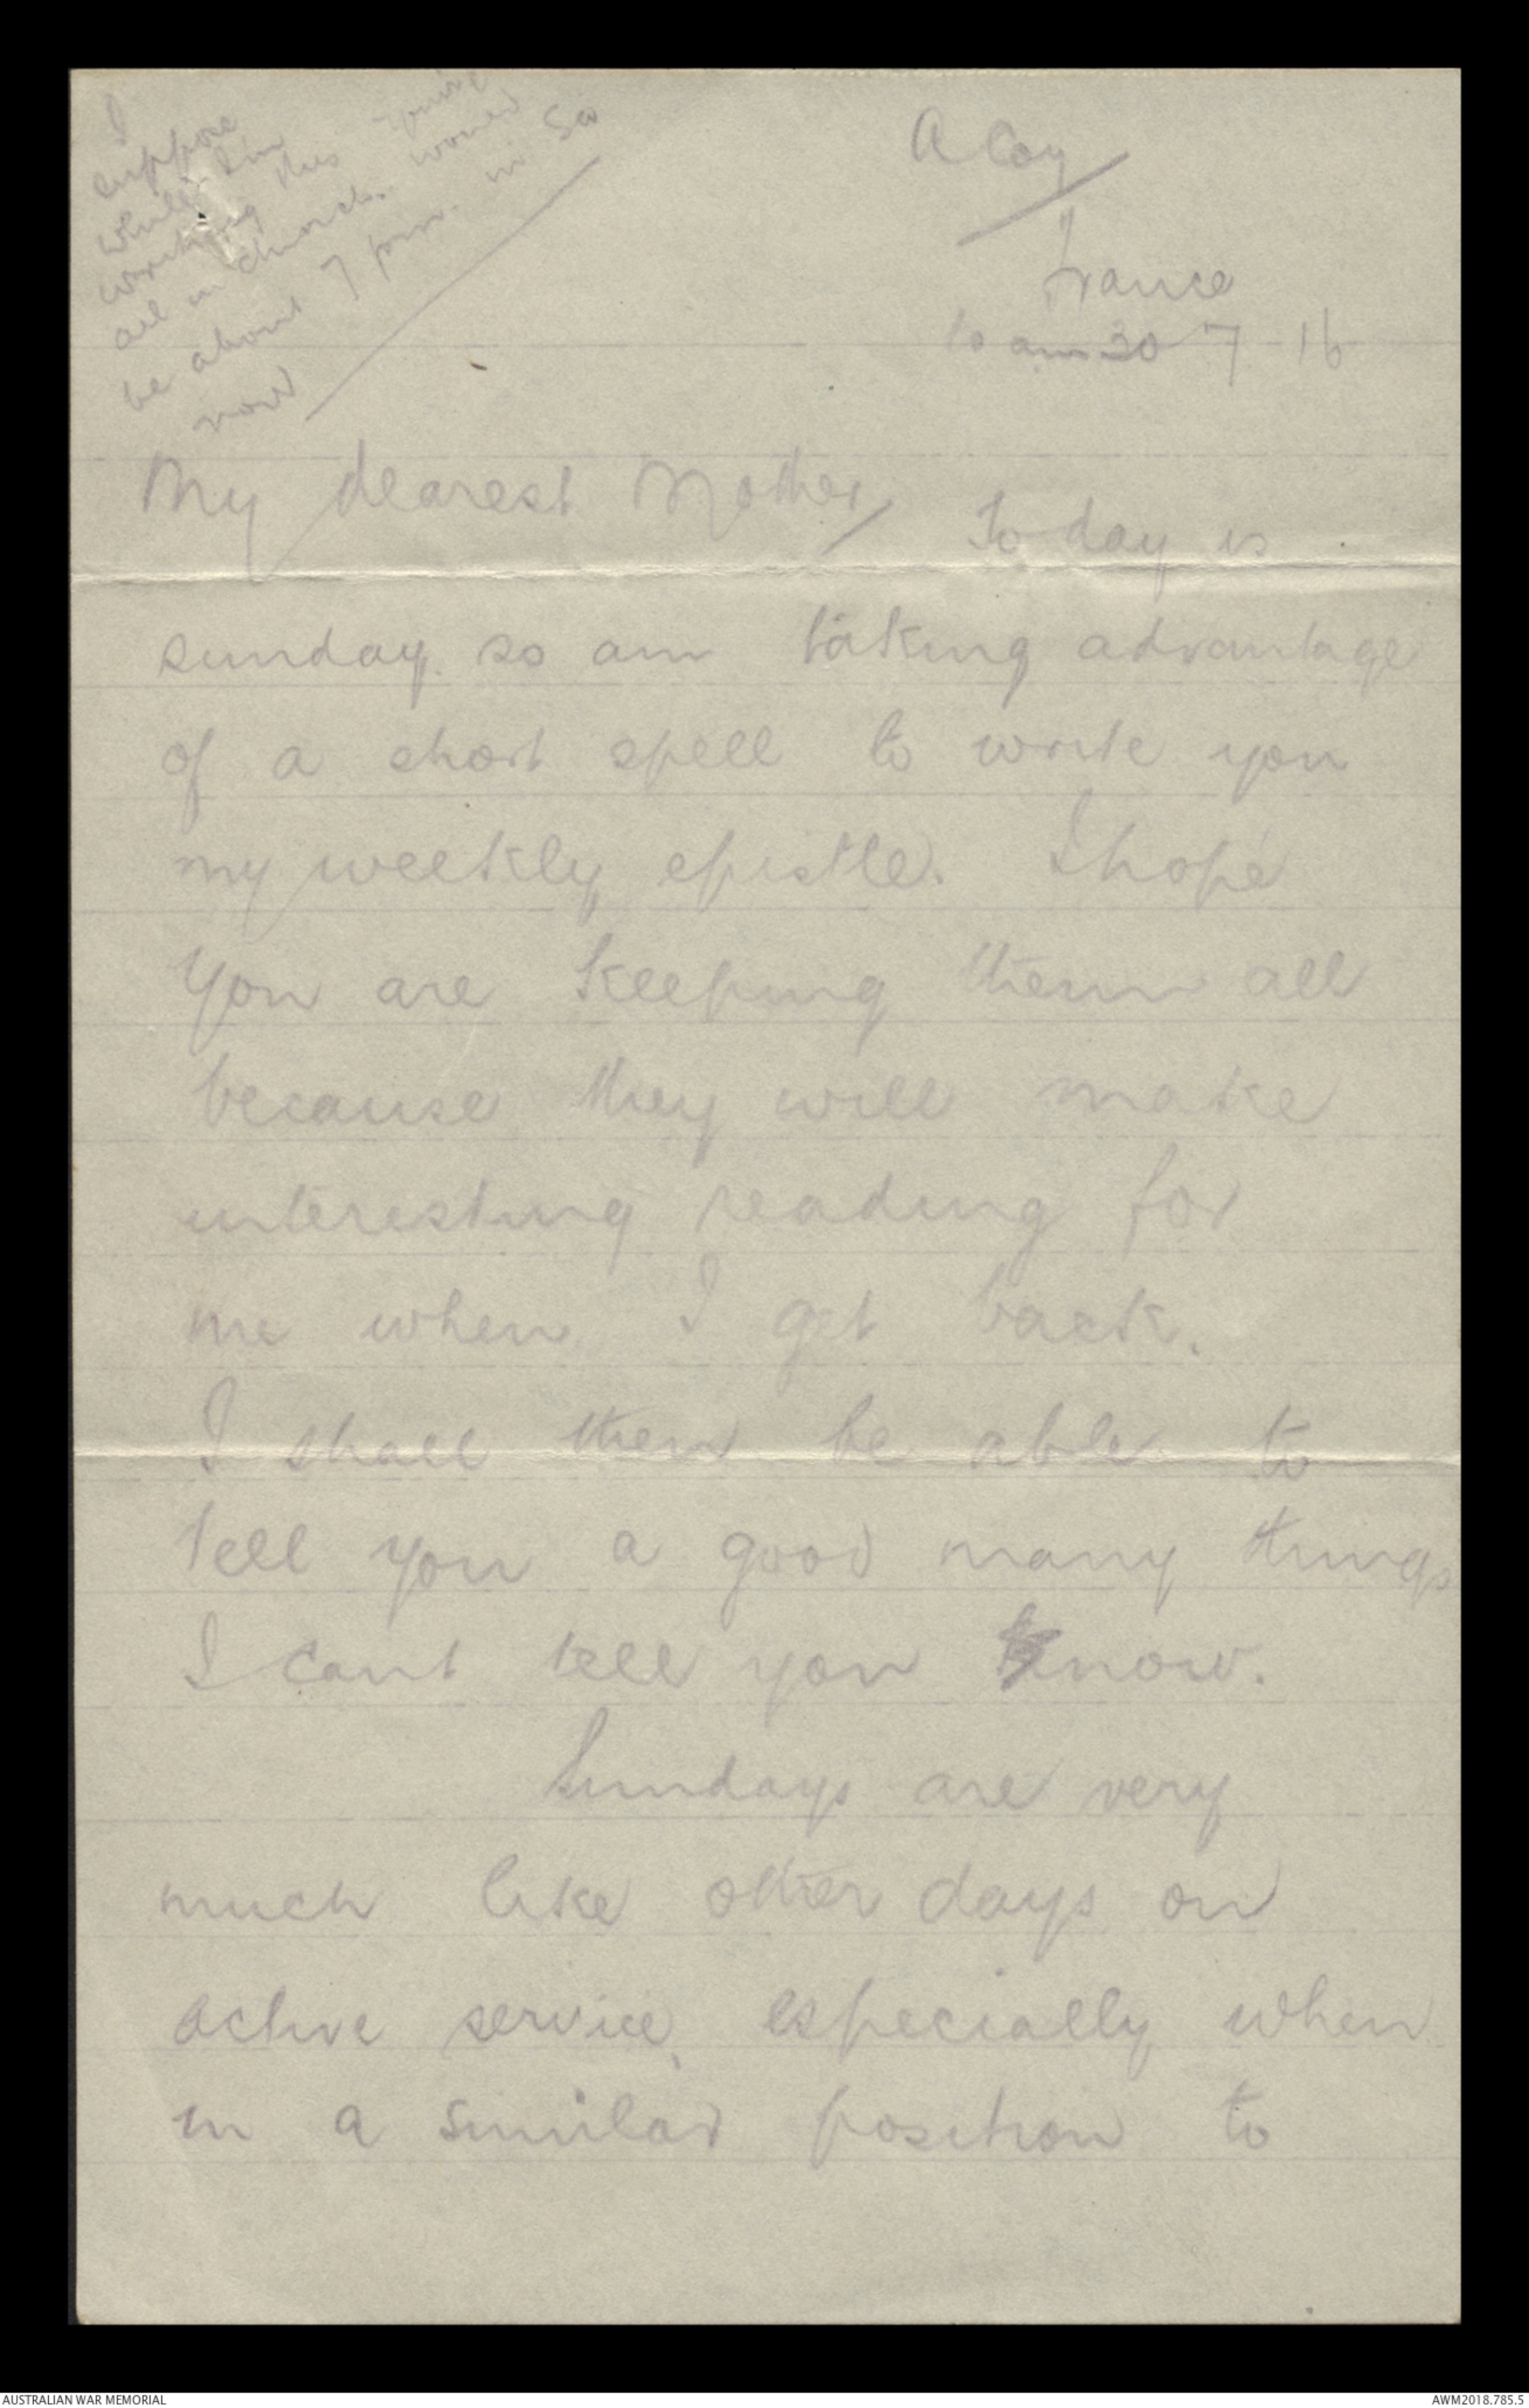 I
suppose
while I'm
writing this your
all in church. would
be about 7 pm. in SA
now
A Coy
France
10 am 30 7-16
My dearest Mother,
To day is
sunday. so am taking advantage
of a short spell to write you
my weekly epistle. I hope
you are keeping them all
because they will make
interesting reading for
me when I get back.
I shall then be able to
tell you a good many things
I cant tell you now.
Sundays are very
much like other days on
active service, especially when
in a similar position to
AUSTRALIAN WAR MEMORIAL
AWM2018.785.5